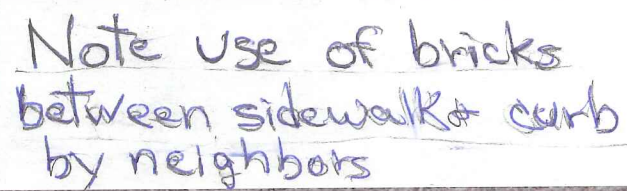 Note use of bricks
between sidewalk & curb
by neighbors